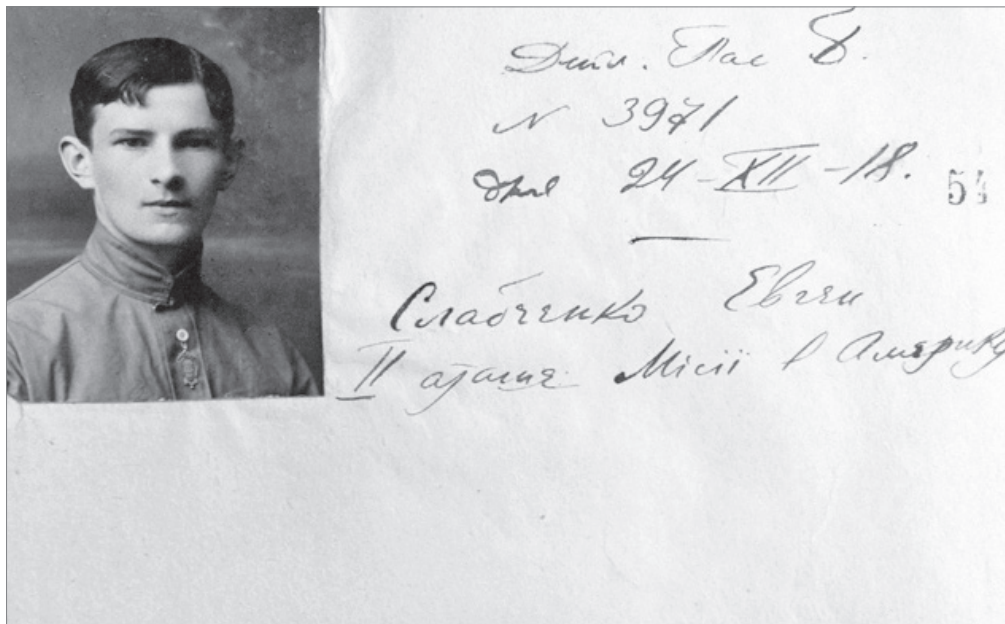 Дипл. Пас Б.
N 3971
дня 24-XII-18.
54
Слабченко Евген
II аташе Місії в Америку